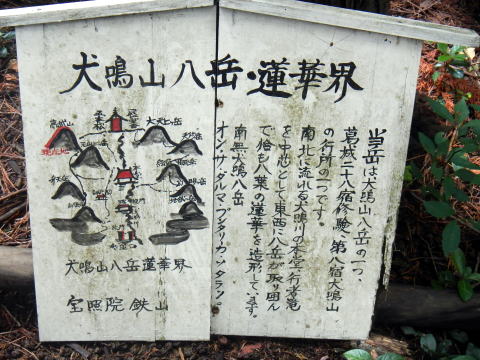 犬鳴山八岳・蓮華界
当岳は犬鳴山八岳の一つ、
葛城二十八宿修験、第八宿犬鳴山
の行所の一つです。
南北に流れる犬鳴川の本堂、行者滝
を中心として東西に八岳が取り囲ん
で恰も八葉の蓮華を造形しています。
南無犬鳴八岳
オン・サ・ダルマ・プンダリーカ・ソタラン
犬鳴山八岳蓮華界
宝照院 鉄山